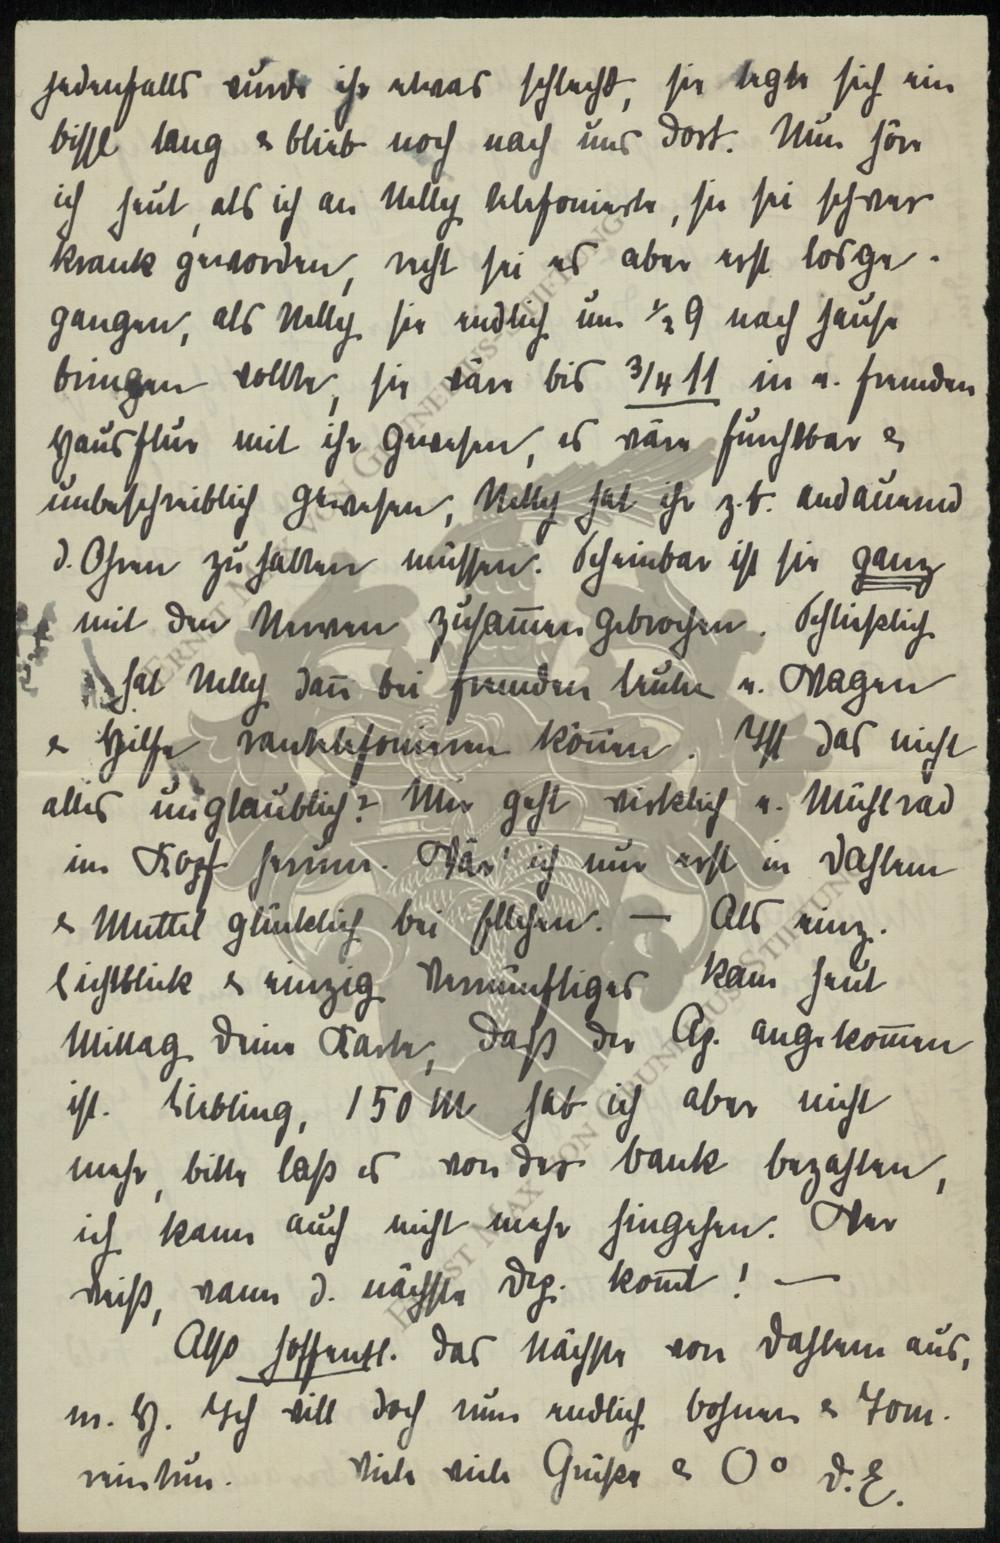 jedenfalls wurde ihr etwas schlecht, sie legte sich ein
bissl lang & blieb noch nach uns dort. Nun höre
ich heut, als ich an Nelly telefonierte, sie sei schwer
krank geworden, recht sei es aber erst losge-
gangen, als Nelly sie endlich um ½ 9 nach Hause
bringen wollte, sie wäre bis 3/4 11 in e. fremden
Hausflur mit ihr gewesen, es wäre furchtbar &
unbeschreiblich gewesen, Nelly hat ihr z.b. andauernd
d. Ohren zuhalten müssen. Scheinbar ist sie ganz
mit den Nerven zusam̄engebrochen. Schließlich
hat Nelly dan̄ bei fremden Leuten e. Wagen
& Hilfe rantelefonieren kön̄en. Ist das nicht
alles unglaublich? Mir geht wirklich e. Mühlrad
im Kopf herum. Wär' ich nur erst in Dahlem
& Muttel glücklich bei Ellchen. — Als einz.
Lichtblick & einzig Vernünftiges kam heut
Mittag Deine Karte, daß der Ap. angekom̄en
ist. Liebling, 150 M hab ich aber nicht
mehr, bitte laß es von der bank bezahlen,
ich kann auch nicht mehr hingehen. Wer
weiß, wann d. nächste Dep. kom̄t! —
Also hoffentl. das Nächste von Dahlem aus,
m. H. Ich will doch nun endlich bohnen & Tom.
eintun. Viele viele Grüße & Oo D.E.
ERNST MAX VON GRUNELIUS-STIFTUNG
ERNST MAX VON GRUNELIUS-STIFTUNG